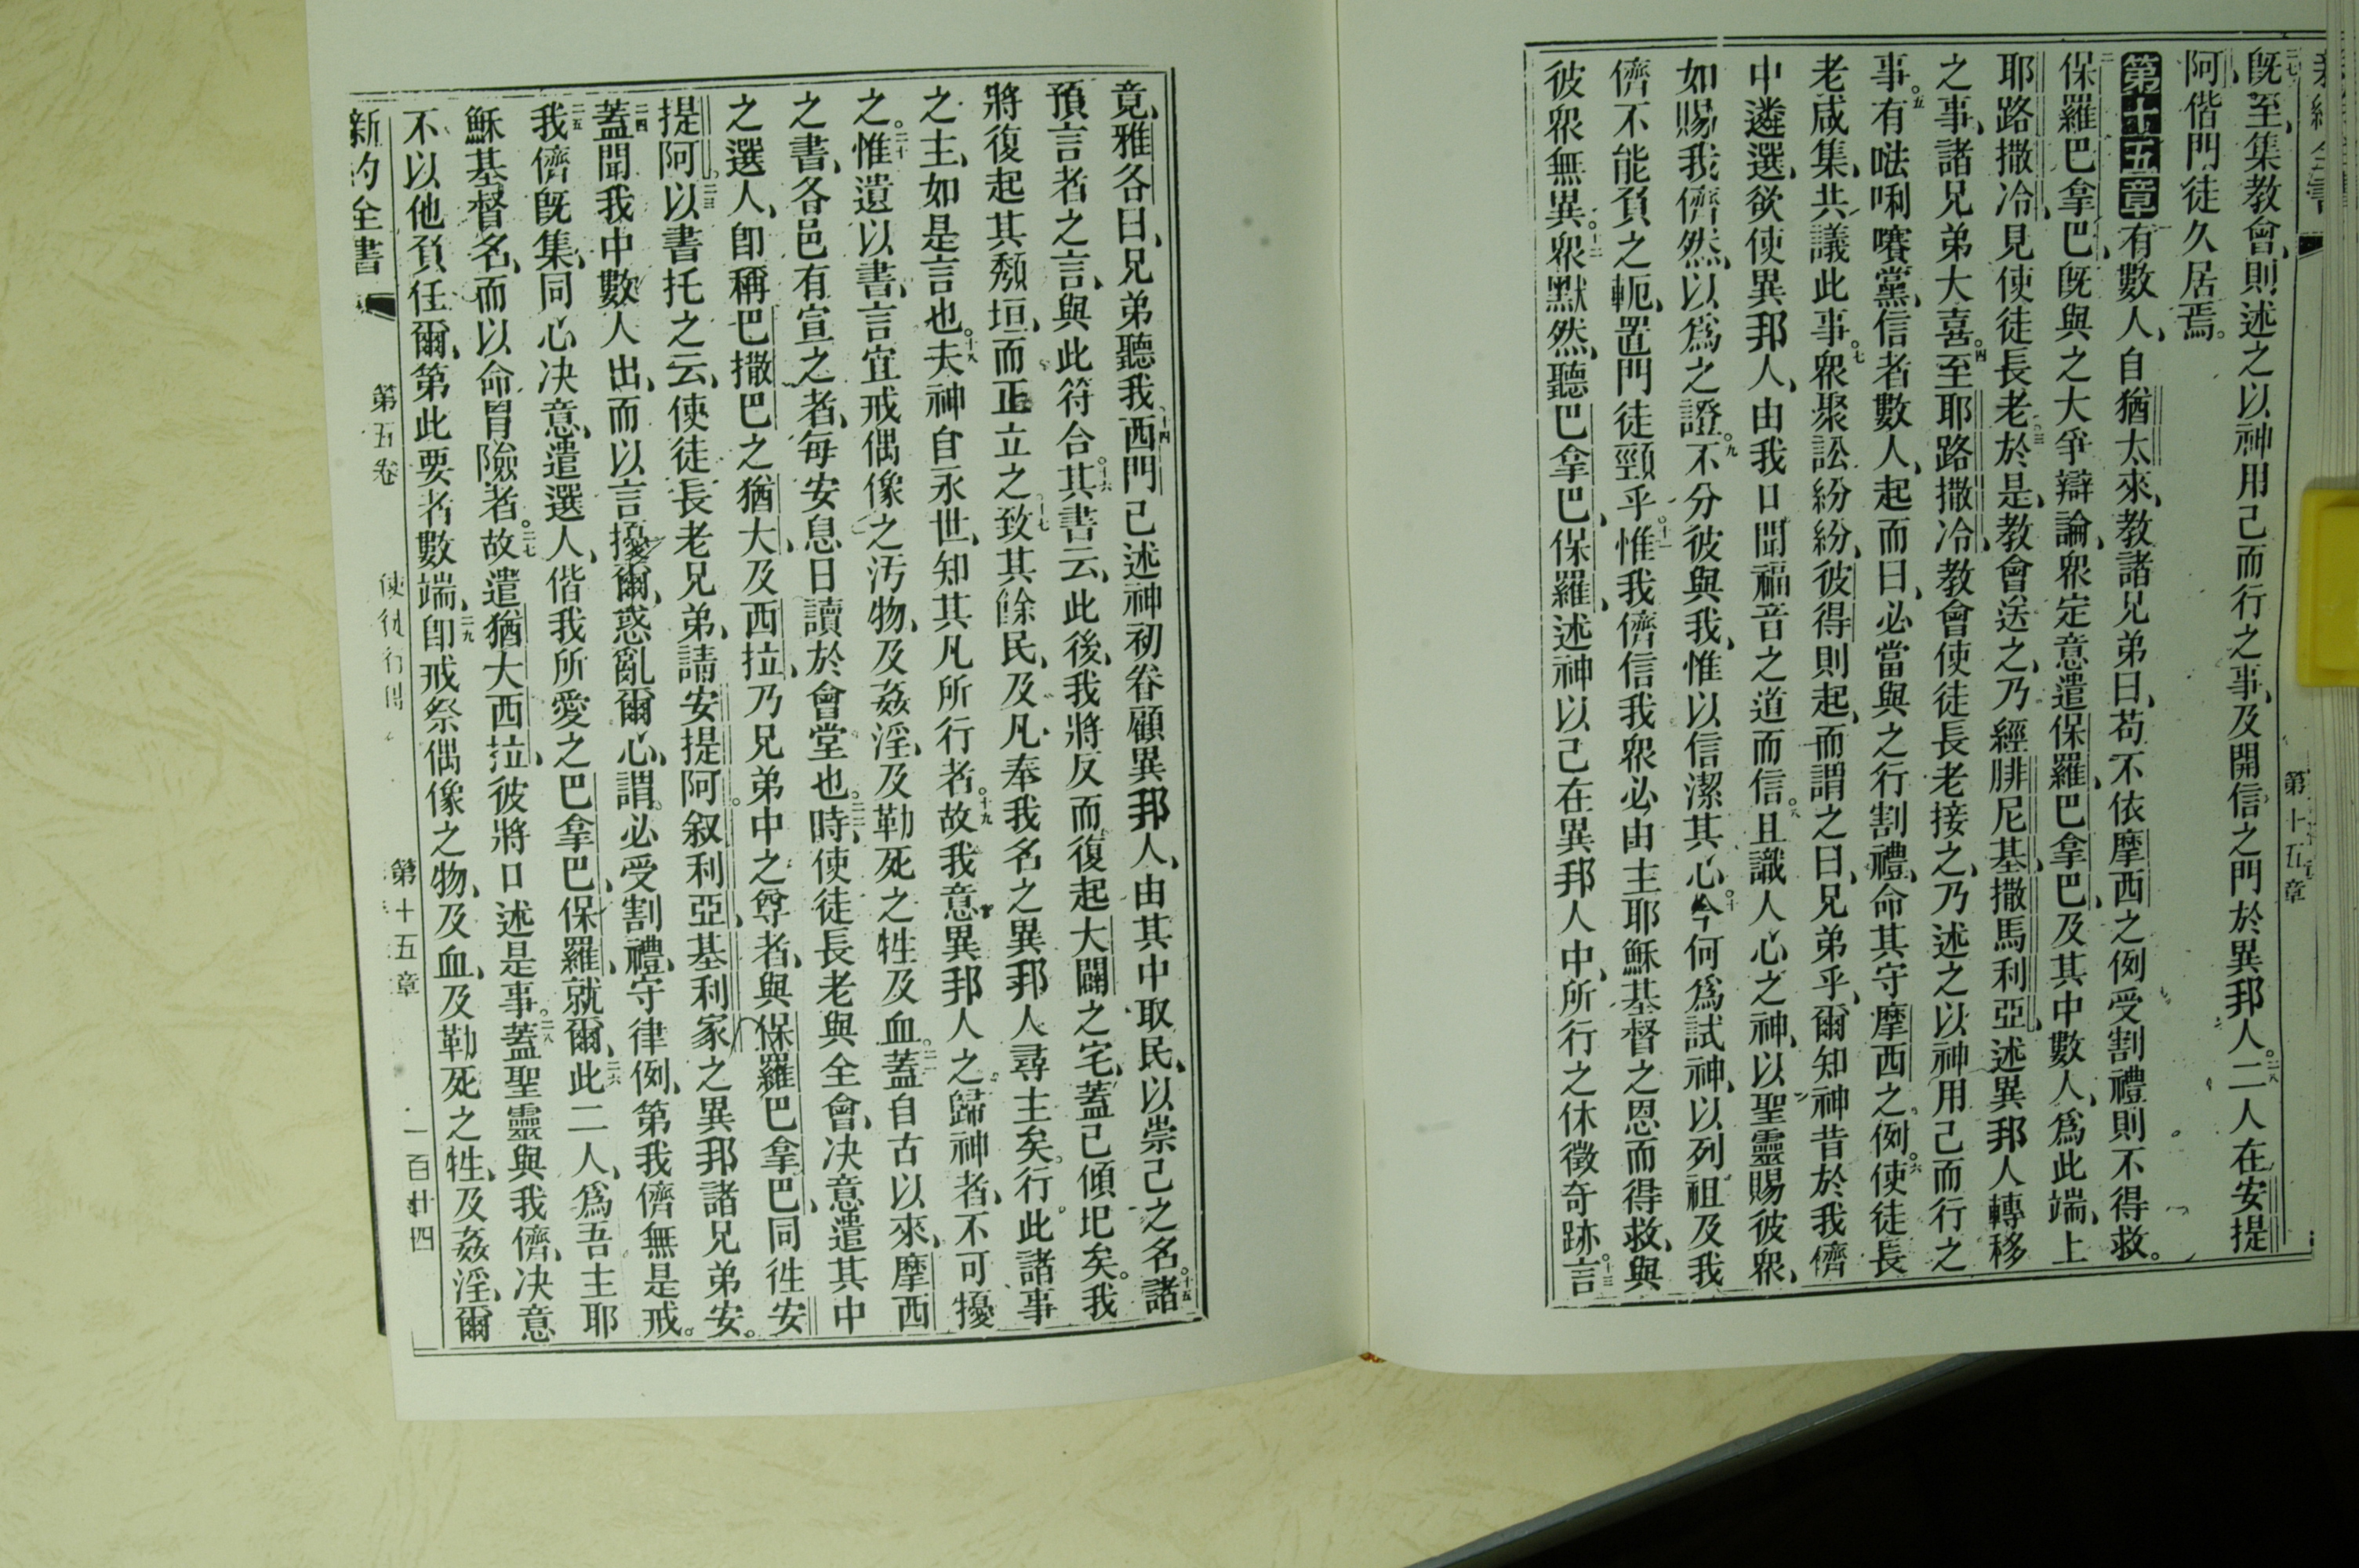 第十五章
二七既至、集教會、則述之以神用己而行之事、及開信之門於異邦人。二八二人在安提
阿偕門徒久居焉。
第十五章有數人、自猶太來、教諸兄弟曰、苟不依摩西之例受割禮則不得救。
二保羅巴拿巴、既與之大爭辯論、衆定意遣保羅、巴拿巴、及其中數人、爲此端、上
耶路撒冷、見使徒長老。三於是、教會送之、乃經腓尼基、撒馬利亞、述異邦人轉移
之事、諸兄弟大喜。四至耶路撒冷、教會使徒長老接之、乃述之以神用己而行之
事。五有𠵽唎㘔黨、信者數人、起而曰、必當與之行割禮、命其守摩西之例。六使徒長
老咸集、共議此事。七衆聚訟紛紛、彼得則起、而謂之曰、兄弟乎、爾知神昔於我儕
中遴選、欲使異邦人、由我口聞福音之道而信。八且識人心之神、以聖靈賜彼衆、
如賜我儕然、以爲之證。九不分彼與我、惟以信潔其心。十今何爲試神、以列祖及我
儕不能負之軛、置門徒頸乎。十一惟我儕信我衆必由主耶穌基督之恩而得救、與
彼衆無異。十二衆默然、聽巴拿巴、保羅、述神以己在異邦人中、所行之休徵奇跡。十三言
竟、雅各曰、兄弟聽我、十四西門已述神初眷顧異邦人、由其中取民、以崇己之名。十五諸
預言者之言、與此符合。十六其書云、此後、我將反而復起大闢之宅、蓋已傾圯矣。我
將復起其頹垣、而正立之、十七致其餘民、及凡奉我名之異邦人尋主矣。行此諸事
之主、如是言也。十八夫神自永世、知其凡所行者。十九故我意異邦人之歸神者、不可擾
之。二十惟遺以書、言宜戒偶像之汚物、及姦淫、及勒死之牲及血。二一蓋自古以來、摩西
之書、各邑有宣之者、每安息日讀於會堂也。二二時、使徒長老與全會、決意遣其中
之選人、卽稱巴撒巴之猶大、及西拉、乃兄弟中之尊者、與保羅巴拿巴、同往安
提阿。二三以書托之云、使徒長老兄弟、請安提阿、叙利亞、基利家之異邦諸兄弟安。
二四蓋聞我中數人出、而以言擾爾、惑亂爾心、謂必受割禮、守律例、第我儕無是戒。
二五我儕既集、同心決意、遣選人、偕我所愛之巴拿巴、保羅、就爾、二六此二人、爲吾主耶
穌基督名、而以命冒險者。二七故遣猶大西拉、彼將口述是事。二八蓋聖靈與我儕、決意
不以他負任爾、第此要者數端、二九卽戒祭偶像之物、及血、及勒死之牲、及姦淫、爾
新約全書 第五卷 使徒行傳 第十五章 一百廿四